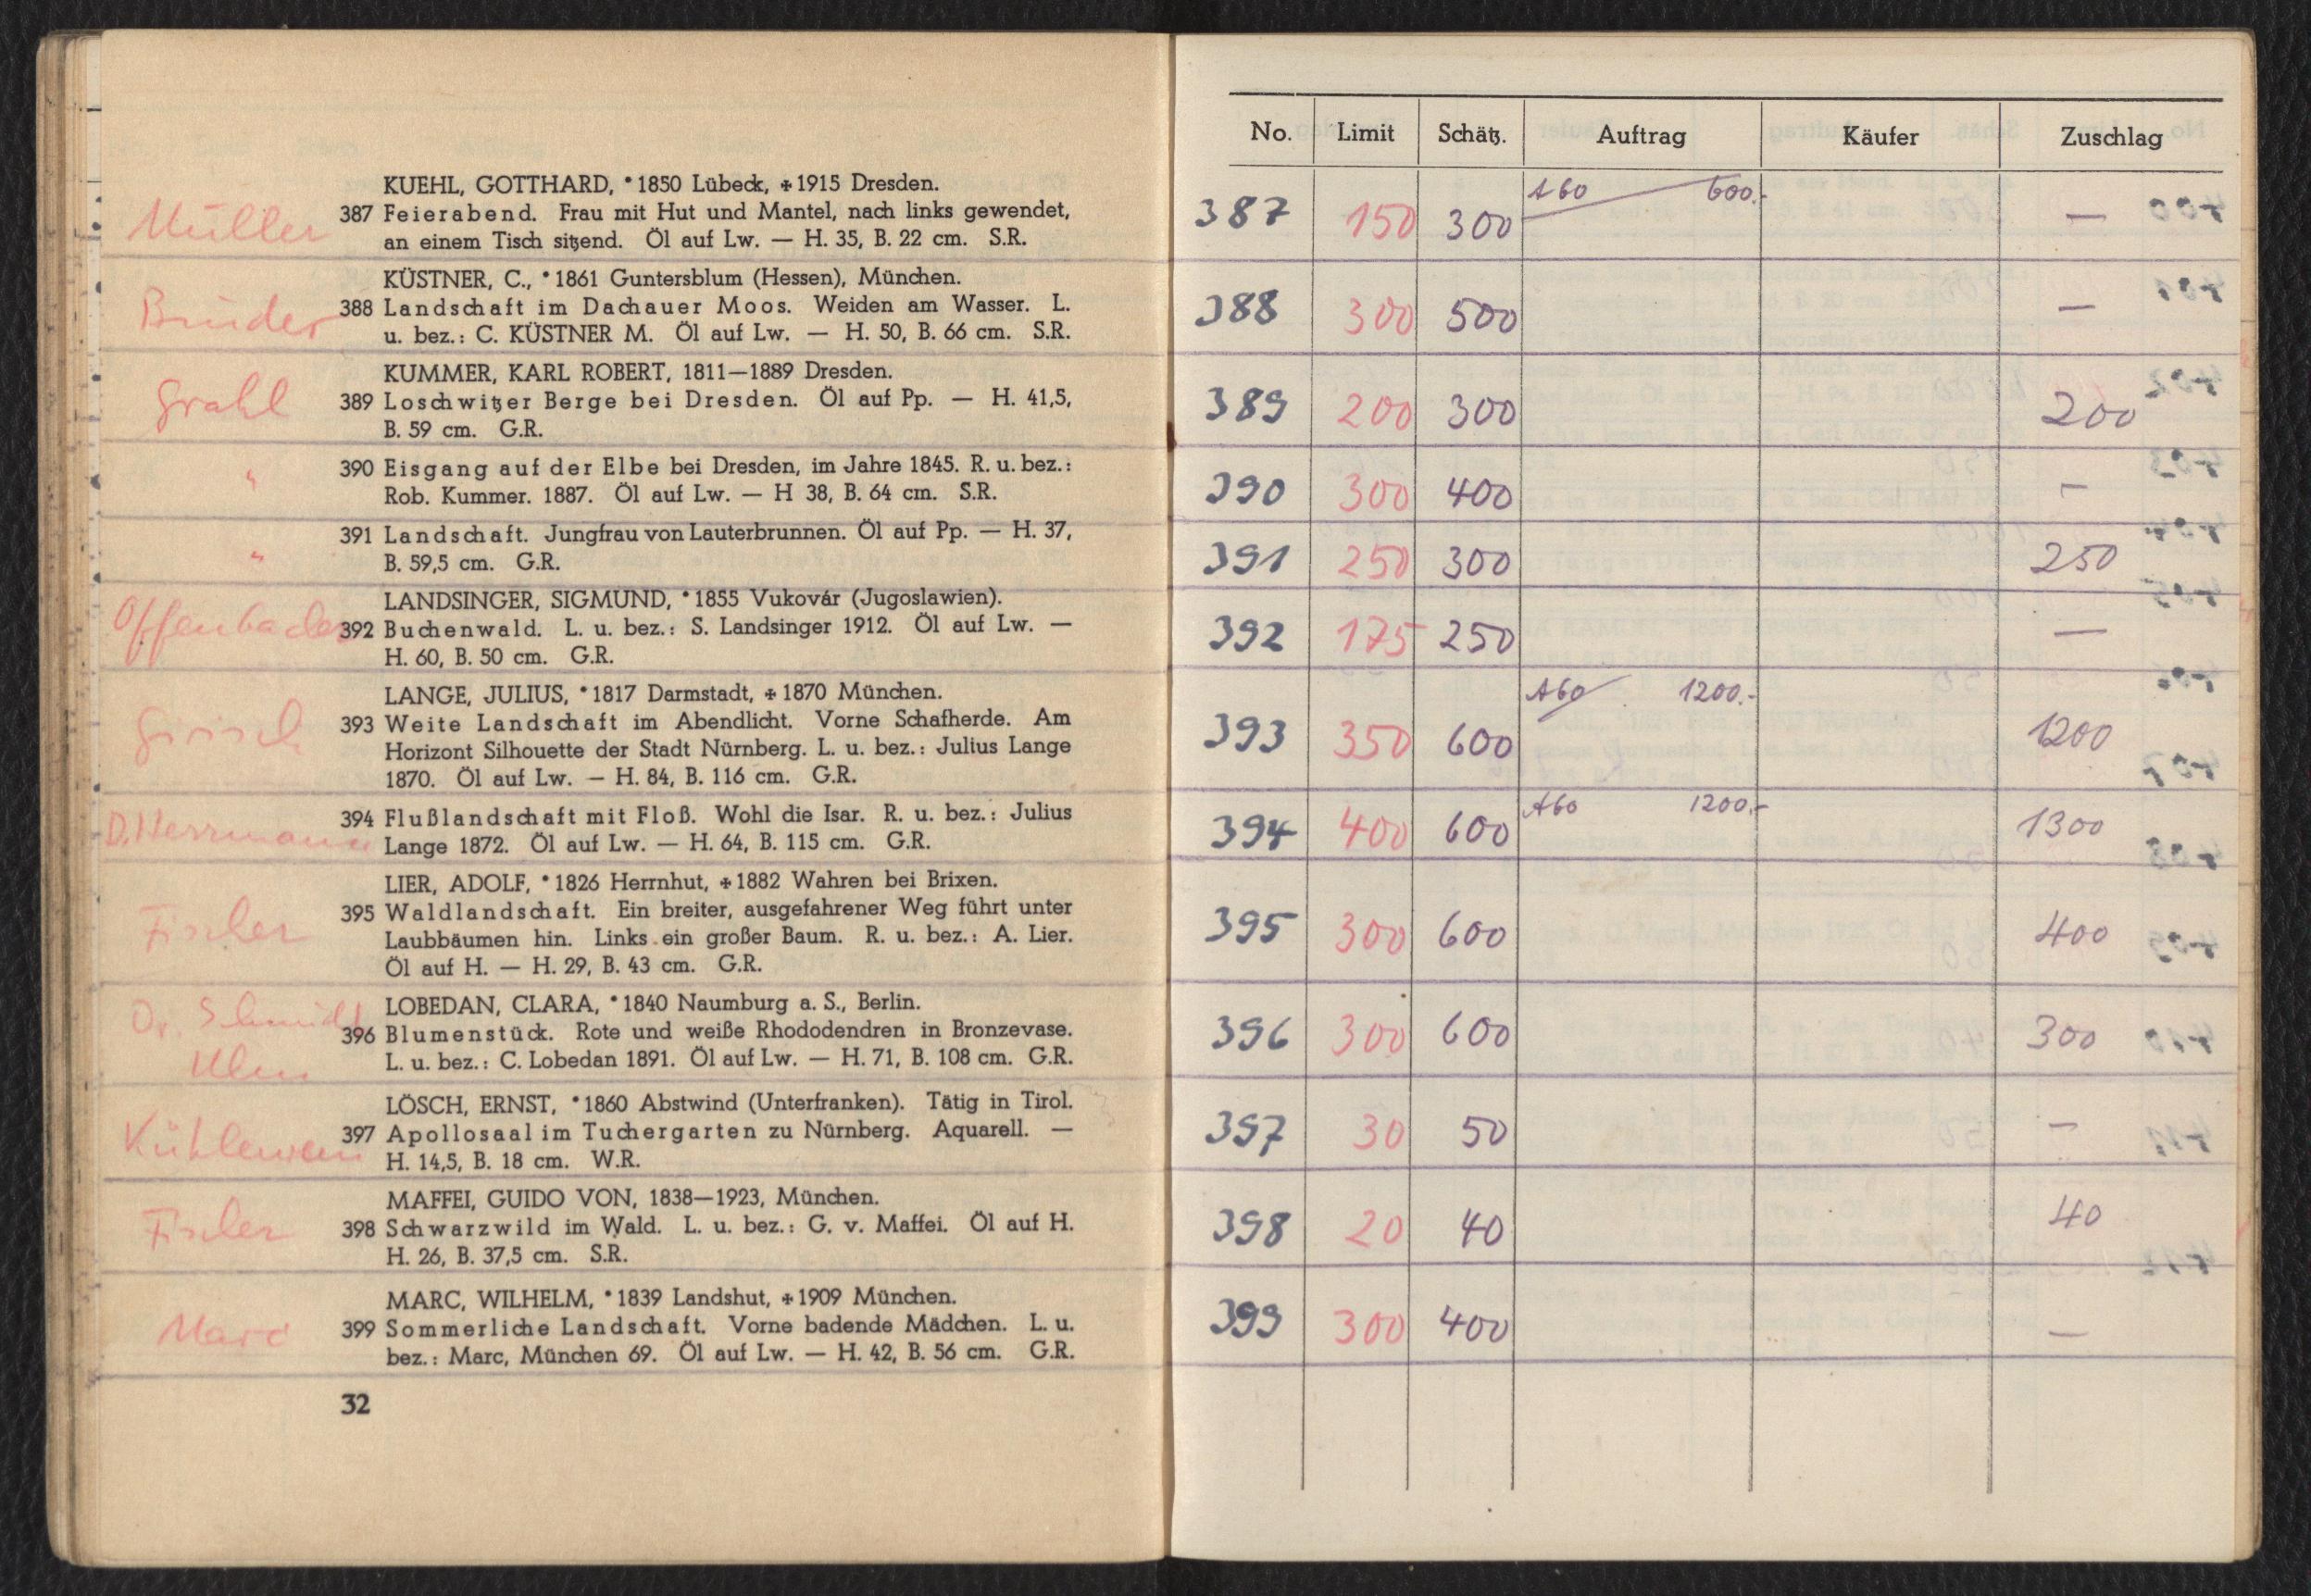 KUEHL, GOTTHARD, *1850 Lübeck, ✠1915 Dresden.
Müller 387 Feierabend. Frau mit Hut und Mantel, nach links gewendet,
an einem Tisch sitzend. Öl auf Lw. — H. 35, B. 22 cm. S.R.
KÜSTNER, C., *1861 Guntersblum (Hessen), München.
388 Landschaft im Dachauer Moos. Weiden am Wasser. L.
u. bez.: C. KÜSTNER M. Öl auf Lw. — H. 50, B. 66 cm. S.R.
KUMMER, KARL ROBERT, 1811—1889 Dresden.
Grahl 389 Loschwitzer Berge bei Dresden. Öl auf Pp. — H. 41,5,
B. 59 cm. G.R.
" 390 Eisgang auf der Elbe bei Dresden, im Jahre 1845. R. u. bez.:
Rob. Kummer. 1887. Öl auf Lw. — H 38, B. 64 cm. S.R.
" 391 Landschaft. Jungfrau von Lauterbrunnen. Öl auf Pp. — H. 37,
B. 59,5 cm. G.R.
LANDSINGER, SIGMUND, *1855 Vukovár (Jugoslawien).
392 Buchenwald. L. u. bez.: S. Landsinger 1912. Öl auf Lw. —
H. 60, B. 50 cm. G.R.
LANGE, JULIUS, *1817 Darmstadt, ✠1870 München.
393 Weite Landschaft im Abendlicht. Vorne Schafherde. Am
Horizont Silhouette der Stadt Nürnberg. L. u. bez.: Julius Lange
1870. Öl auf Lw. — H. 84, B. 116 cm. G.R.
D. Herrmann 394 Flußlandschaft mit Floß. Wohl die Isar. R. u. bez.: Julius
Lange 1872. Öl auf Lw. — H. 64, B. 115 cm. G.R.
LIER, ADOLF, *1826 Herrnhut, ✠1882 Wahren bei Brixen.
Fischer 395 Waldlandschaft. Ein breiter, ausgefahrener Weg führt unter
Laubbäumen hin. Links ein großer Baum. R. u. bez.: A. Lier.
Öl auf H. — H. 29, B. 43 cm. G.R.
LOBEDAN, CLARA, *1840 Naumburg a. S., Berlin.
Dr. Schmidt 396 Blumenstück. Rote und weiße Rhododendren in Bronzevase.
Ulm L. u. bez.: C. Lobedan 1891. Öl auf Lw. — H. 71, B. 108 cm. G.R.
LÖSCH, ERNST, *1860 Abstwind (Unterfranken). Tätig in Tirol.
397 Apollosaal im Tuchergarten zu Nürnberg. Aquarell. —
H. 14,5, B. 18 cm. W.R.
MAFFEI, GUIDO VON, 1838—1923, München.
Fischer 398 Schwarzwild im Wald. L. u. bez.: G. v. Maffei. Öl auf H.
H. 26, B. 37,5 cm. S.R.
MARC, WILHELM, *1839 Landshut, ✠1909 München.
Marc 399 Sommerliche Landschaft. Vorne badende Mädchen. L. u.
bez.: Marc, München 69. Öl auf Lw. — H. 42, B. 56 cm. G.R.
32
No. Limit Schätz. Auftrag Käufer Zuschlag
387 150 300 A60 600.- —
388 300 500 —
389 200 300 200
390 300 400 —
391 250 300 250
392 175 250 —
393 350 600 A60 1200.- 1200
394 400 600 A60 1200.- 1300
395 300 600 400
396 300 600 300
397 30 50 —
398 20 40 40
399 300 400 —